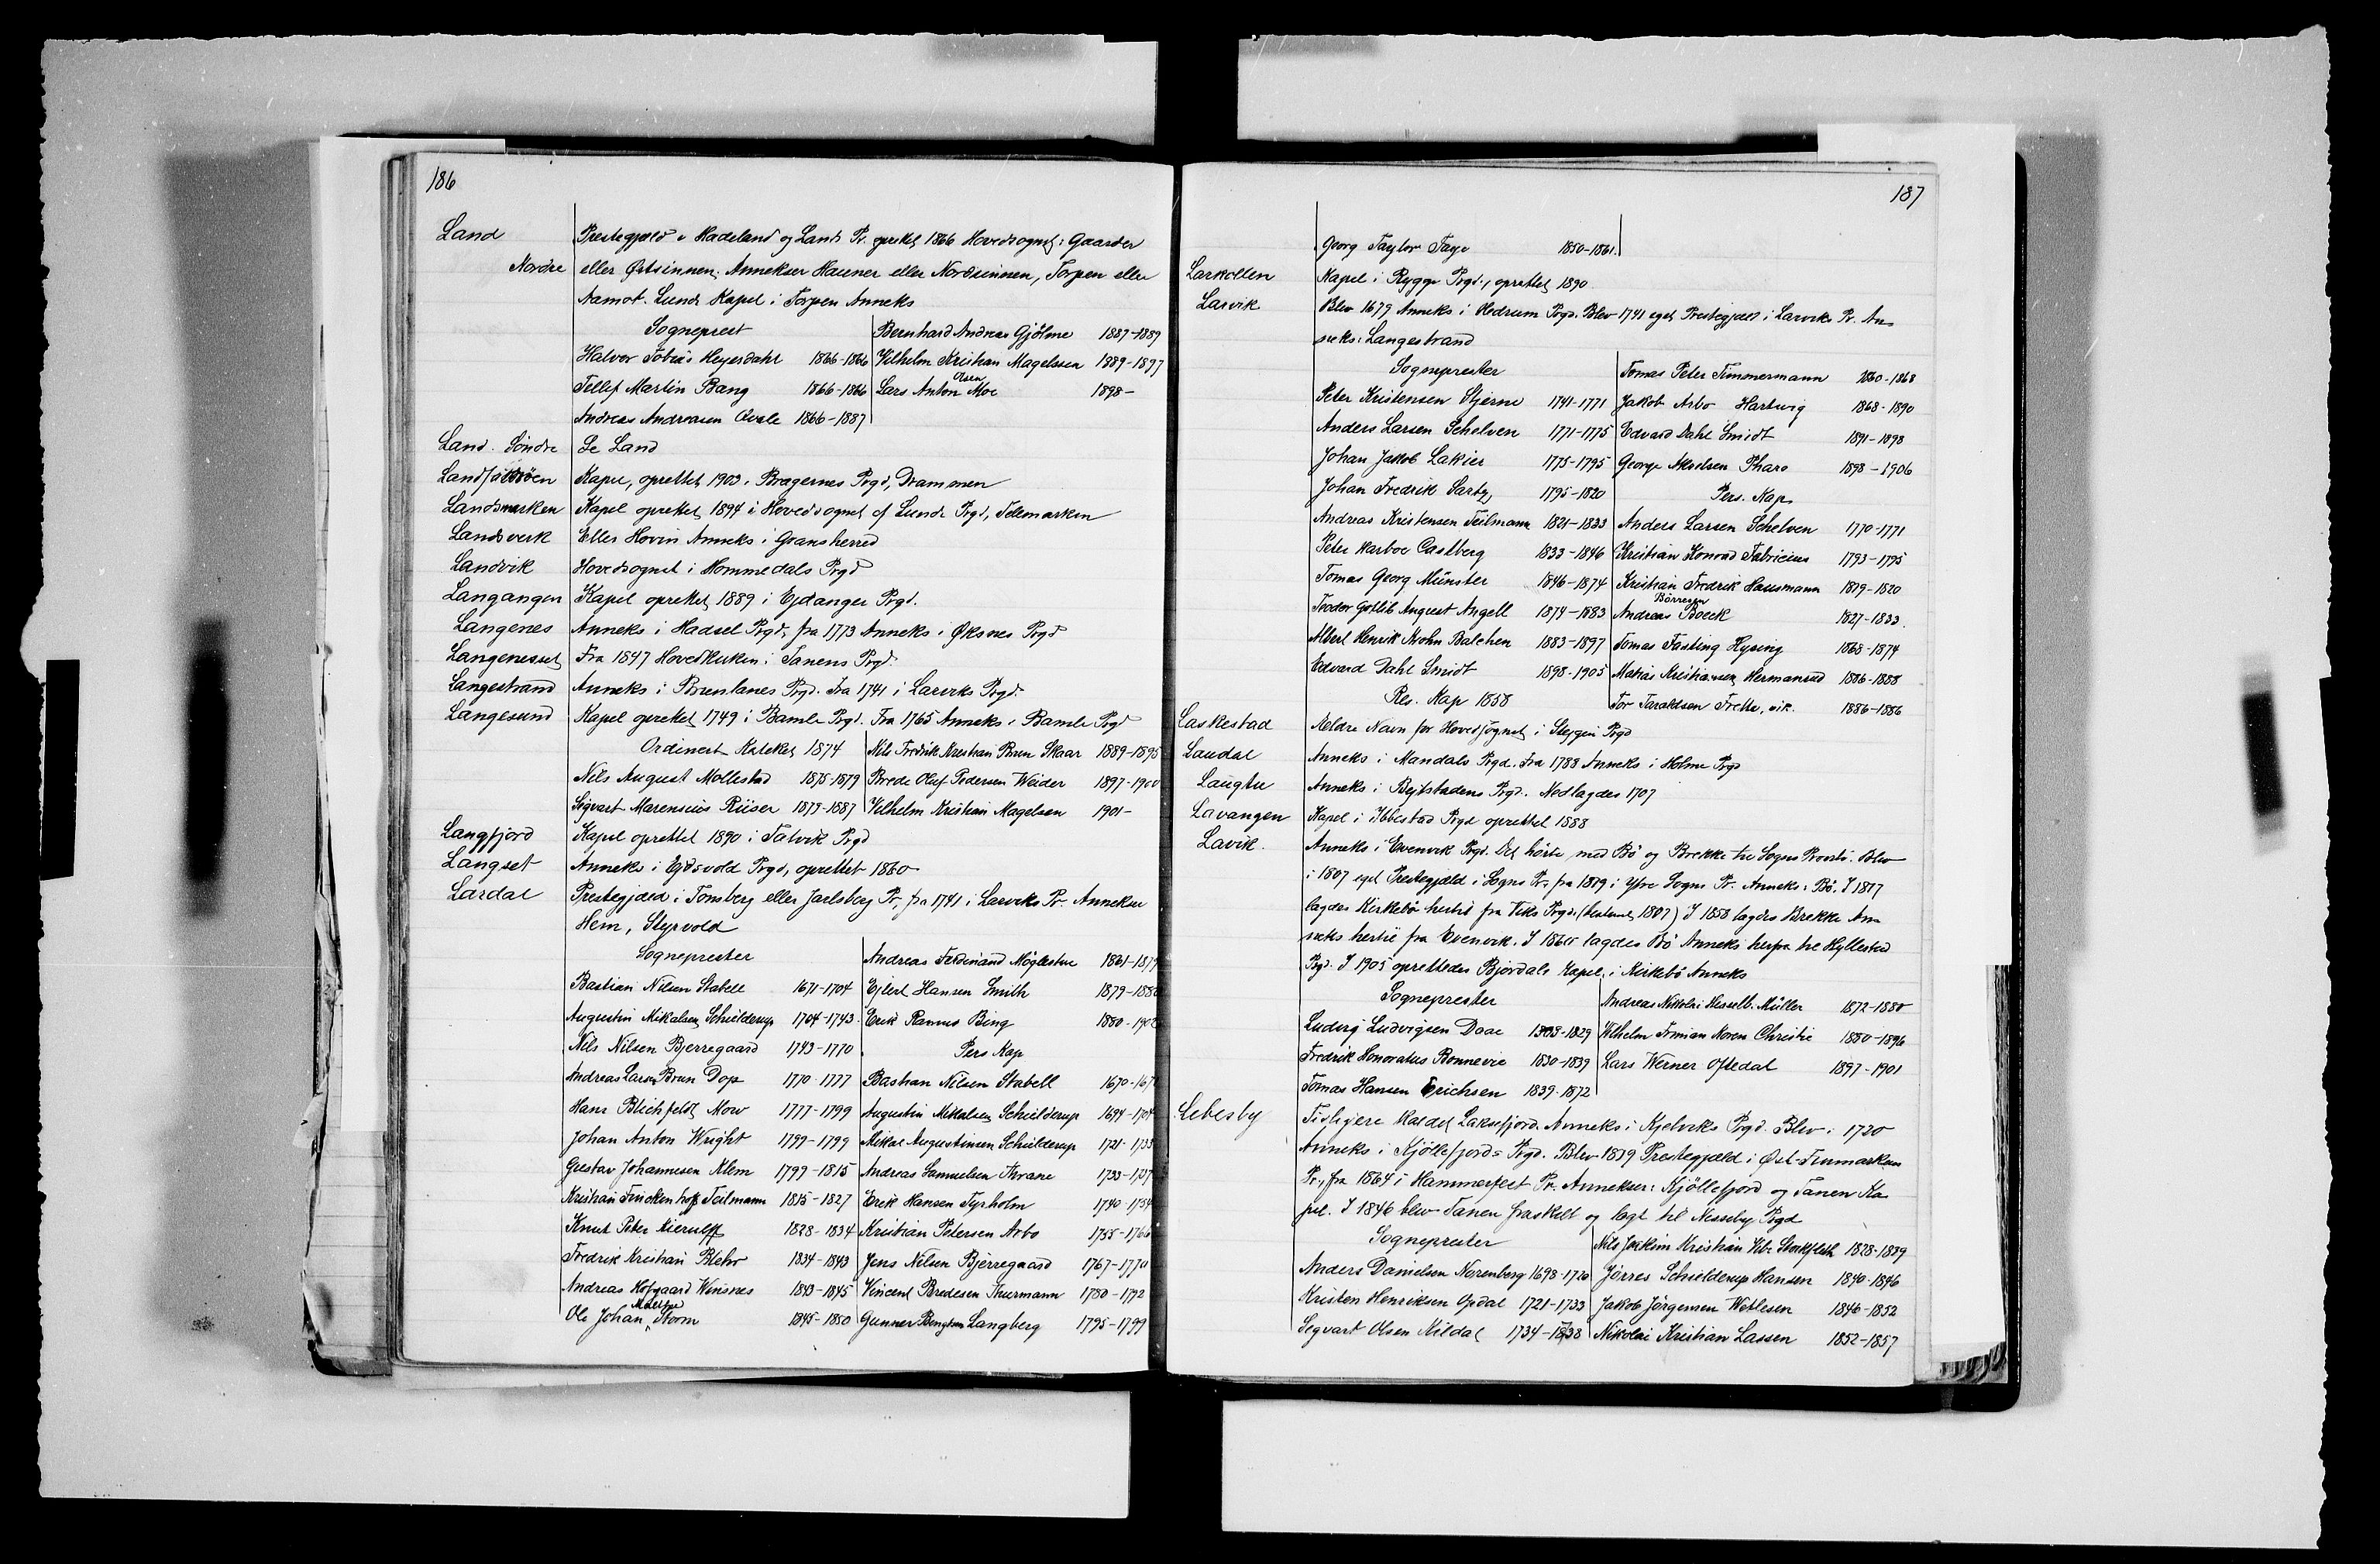 186
Land Prestegjæld i Hadeland og Lands Pr. oprettet 1866 Hovedsognet: Gaarder
Nordre eller Østsinnen. Annekser Hauner eller Nordsinnen, Torpen eller
Aamot. Lunds Kapel i Torpen Anneks
Sogneprest
Halvor Tobias Heyerdahl 1866-1866
Tellef Martin Bang 1866-1866
Andreas Andreasen Qvale 1866-1887
Bernhard Andreas Gjølme 1887-1889
Vilhelm Kristian Magelssen 1889-1897
Lars Anton Olsen Moe 1898-
Land. Söndre Se Land
Landfaldöen Kapel, oprettet 1903 i Bragernes Prgd, Drammen
Landsmarken Kapel oprettet 1894 i Hovedsognet af Lunde Prgd, Telemarken
Landsverk Eller Hovin Anneks i Gransherred
Landvik Hovedsognet i Hommedals Prgd
Langangen Kapel oprettet 1889 i Ejdanger Prgd.
Langenes Anneks i Hadsel Prgd, fra 1773 Anneks i Øksnes Prgd
Langenesset Fra 1847 Hovedkirken i Tanens Prgd.
Langestrand Anneks i Brunlanes Prgd. Fra 1741 i Larviks Prgd.
Langesund Kapel oprettet 1749 i Bamle Prgd. Fra 1765 Anneks i Bamle Prgd
Ordinert Kateket 1874
Nils August Mollestad 1875-1879
Sigvart Marensius Riiser 1879-1887
Nils Fredrik Kristian Brun Skaar 1889-1895
Brede Oluf Pedersen Weider 1897-1900
Vilhelm Kristian Magelsen 1901-
Langfjord Kapel oprettet 1890 i Talvik Prgd
Langset Anneks i Ejdsvold Prgd, oprettet 1860
Lardal Prestegjæld i Tonsberg eller Jarlsberg Pr, fra 1741 i Larviks Pr. Annekser
Hem, Styrvold
Sogneprester
Bastian Nilsen Stabell 1671-1704
Augustin Mikalsen Schielderup 1704-1743
Nils Nilsen Bjerregaard 1743-1770
Andreas Larsen Brun Dop 1770-1777
Hans Blichfeldt Mow 1777-1799
Johan Anton Wright 1799-1799
Gustav Johannesen Klem 1799-1815
Kristian Frückenhoff Teilmann 1815-1827
Knut Peter Kierulff 1828-1834
Fredrik Kristian Blehr 1834-1843
Andreas Höfgaard Winsnes 1843-1845
Ole Johan Storm 1845-1850
Andreas Ferdinand Möglestue 1861-1879
Ejlert Hansen Smith 1879-188
Erik Ramus Bing 1880-190
Pers Kap
Bastian Nilsen Stabell 1670-167
Augustin Mikalsen Schielderup 1694-1704
Mikal Augustinsen Schielderup 1721-1733
Andreas Samuelsen Thrane 1733-1737
Erik Hansen Tyrholm 1740-1754
Kristian Petersen Arbo 1755-1766
Jens Nilsen Bjerregaard 1767-1770
Vincent Bredesen Thurmann 1780-1792
Gunner Bengtsen Langberg 1795-1799
187
Georg Taylor Fage 1850-1861.
Larkollen Kapel i Rygge Prgd., oprettet 1890
Larvik Blev 1679 Anneks i Hedrum Prgd. Blev 1741 eget Prestegjæld i Larviks Pr. An-
neks: Langestrand
Sogneprester
Peter Kristensen Stjerne 1741-1771
Anders Larsen Schelven 1771-1775
Johan Jakob Lakier 1775-1795
Johan Fredrik Sartz, 1795-1820
Andreas Kristensen Teilmann 1821-1833
Peter Harboe Castberg 1833-1846
Tomas Georg Münster 1846-1874
Teodor Gotlib August Angell 1874-1883
Albert Henrik Krohn Balchen 1883-1897
Edvard Dahl Smidt 1898-1905
Res. Kap 1858
Tomas Peter Timmermann 1860-1868
Jakob Arbo Hartwig 1868-1890
Edvard Dahl Smidt 1891-1898
George Nkrelsen Pharo 1898-1906
Pers. Kap
Anders Larsen Schelven 1770-1771
Kristian Konrad Fabricius 1793-1795
Kristian Fredrik Hausmann 1819-1820
Andreas Börresen Boeck 1827-1833.
Tomas Fasting Hysing 1868-1874
Matias Kristiansen Hermanrud 1886-1888
Tor Taraldsen Frette, vik. 1886-1886
Laskestad Aeldre Navn for Hovedsognet i Stejgen Prgd
Laudal Anneks i Mandals Prgd. Fra 1788 Anneks i Holme Prgd
Laugtu Anneks i Bejtstadens Prgd. Nedlagdes 1707
Lavangen Kapel i Ibbestad Prgd oprettet 1888
Lavik. Anneks i Evenvik Prgd. Det hörte med Bö og Brekke til Sogns Provsti. Blev
i 1807 eget Prestegjæld i Sogns Pr, fra 1819 i Ytre Sogns Pr. Anneks: Bö. I 1817
lagdes Kirkebö hertil fra Viks Prgd. (bestemt 1807) I 1858 lagdes Brekke An-
neks hertil fra Evenvik. I 186 lagdes Bö Anneks herfra til Hyllestad
Prgd. I 1905 oprettedes Bjordals Kapel i Kirkebö Anneks
Sogneprester
Ludvig Ludvigsen Daae 1808-1829
Fredrik Honoratus Bonnevie 1830-1839
Tomas Hansen Erichsen 1839-1872
Andreas Nikolai Hesselb. Müller 1872-1880
Vilhelm Frimian Koren Christie 1880-1896
Lars Werner Oftedal 1897-1901
Lebesby Tidligere kaldet Laksefjord. Anneks i Kjelviks Prgd. Blev i 1720
Anneks i Kjöllefjords Prgd. Blev 1839 Prestegjæld i Øst-Finmarken
Pr., fra 1864 i Hammerfest Pr. Annekser: Kjöllefjord og Tanen Ka-
pel. I 1846 blev Tanen fraskilt og lagt til Nesseby Prgd
Sogneprester
Anders Danielsen Norenberg 1698-1720
Kristen Henriksen Opdal 1721-1733
Segvart Olsen Kildal 1734-1738
Nils Joakim Kristian Vibe Stockfleth 1828-1839
Jörres Schielderup Hansen 1840-1846
Jakob Jörgensen Wetlesen 1846-1852
Nikolai Kristian Lassen 1852-1857